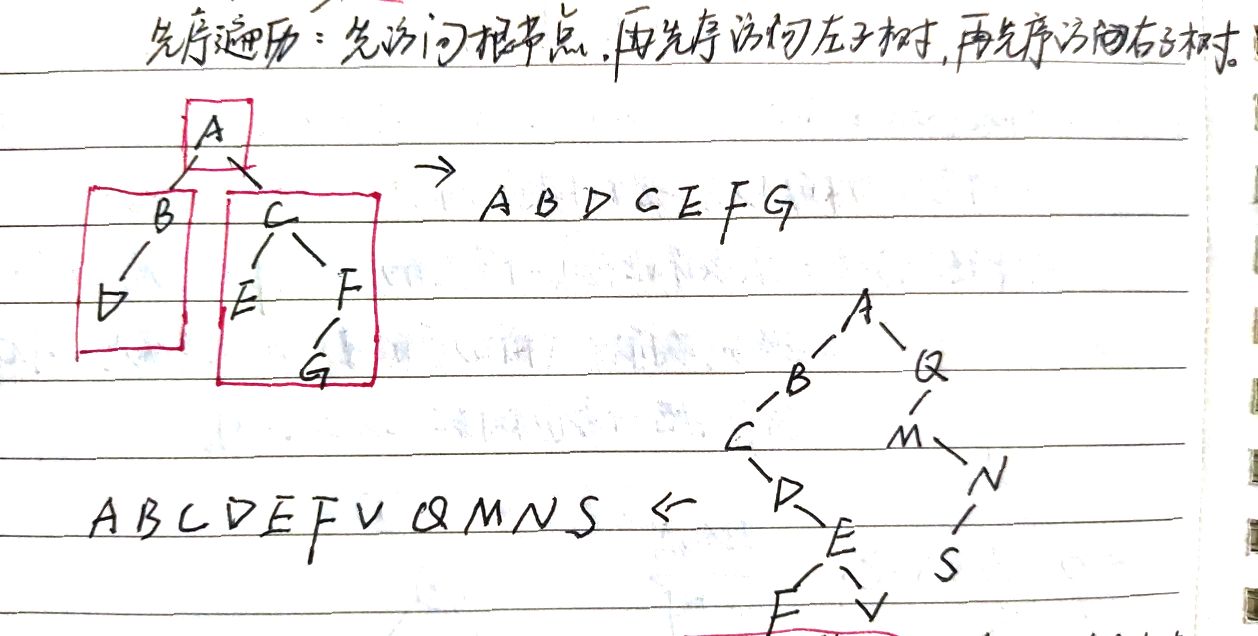 先序遍历：先访问根节点，再先序访问左子树，再先序访问右子树。
A
→ A B D C E F G
B C
D E F
G
A
B Q
C M
N
D
A B C D E F V Q M N S ←
E
S
F V